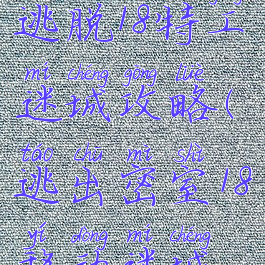 逃脱18特工
mí chéng gōng lüè
迷城攻略(
táo chū mì shì
逃出密室18
yí dòng mí chéng
移动迷城